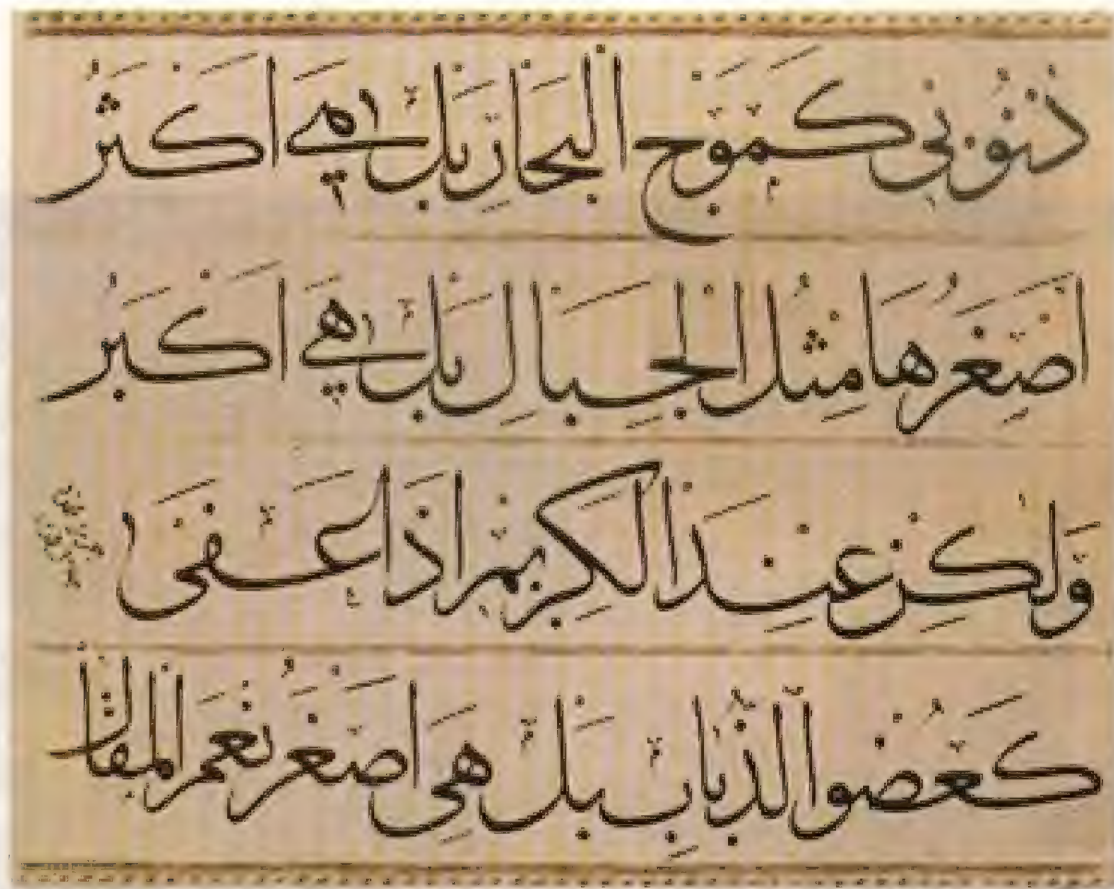 ذُنُوبِى كَمَوْجِ الْبِحَارِ بَلْ هِىَ اَكْثَرْ
اَصْغَرُهَا مِثْلُ الْجِبَالِ بَلْ هِىَ اَكْبَرْ
وَلٰكِنْ عِنْدَ الْكَرِيْمِ اِذَا عَفٰى
كَعُضْوِ الذُّبَابِ بَلْ هِىَ اَصْغَرْ نِعْمَ الْمَقَالْ